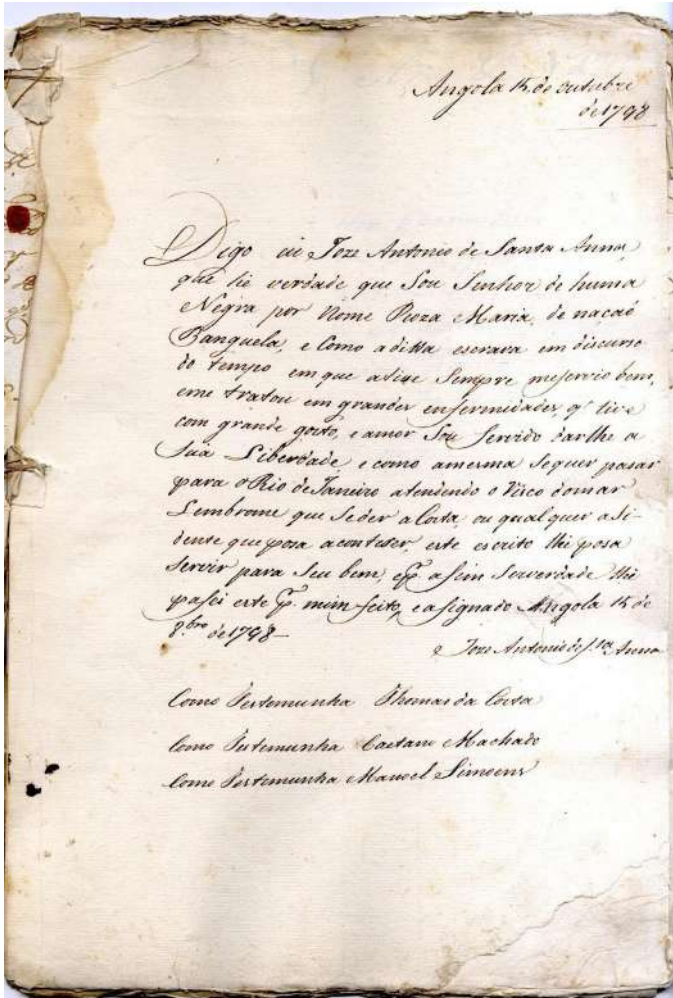 Angola 15 de outubre
de 1798
Digo eu Joze Antonio de Santa Anna,
que he verdade que Sou Senhor de huma
Negra por Nome Roza Maria, de naçaõ
Banguela, e Como aditta escrava em discurso
do tempo em que ative Sempre meservio bem,
eme tratou em grandes enfermidades, q̃ tive
com grande gosto, e amor Sou Servido darlhe a
Sua Liberdade, e como amesma Sequer pasar
para o Rio de Janeiro atendendo o Risco domar
Lembrome que Seder a Costa, ou qual quer asi-
dente que posa aconteser, este escrito lhe posa
Servir para Seu bem, e p.r asim Serverdade lhe
pasei este p.r mim feito, e asignado Angola 15 de
8.bro de 1798
Joze Antonio de S.ta Anna
Como Testemunha Thomas da Costa
Como Testemunha Caetano Machado
Como Testemunha Manoel Simoens